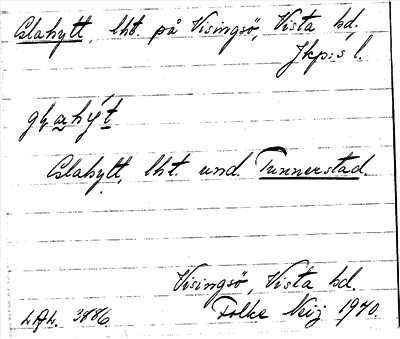 Glahytt, lht. på Visingsö, Vista hd.,
Jkp:s l.
Glahytt, lht. und. Tunnerstad.
Visingsö, Vista hd.
3886. Folke Neij 1940.